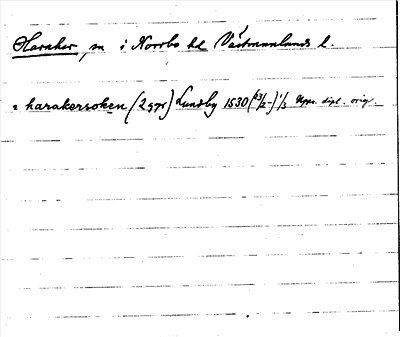 Haraker, sn i Norrbo hd Västmannlands l.
= harakersoken (2 ggr) Lundby 1530 (23/2-) 1/3 dipl. orig.